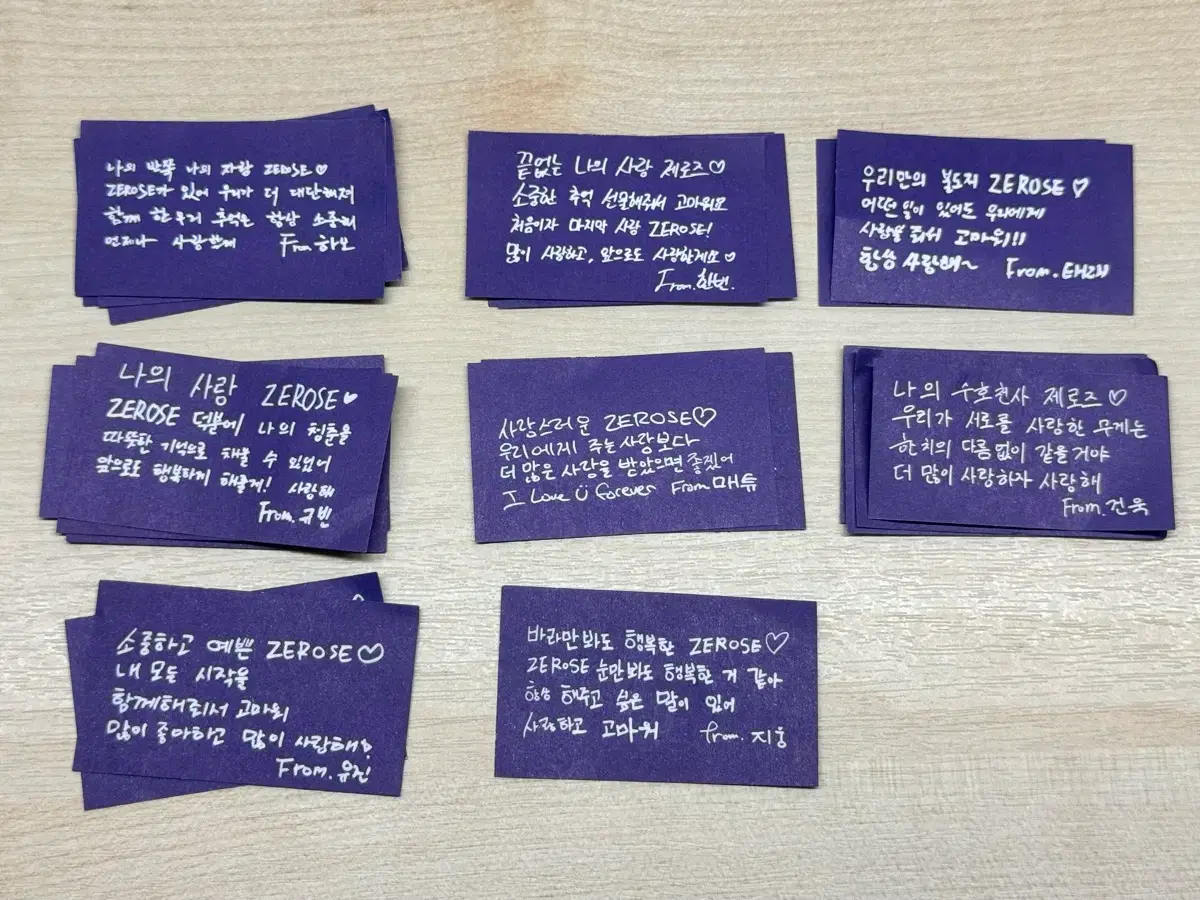 나의 반쪽 나의 자랑 ZEROSE♡
ZEROSE가 있어 우리가 더 대단해져
함께 한 우리 추억은 항상 소중해
언제나 사랑할게 From.하오
끝없는 나의 사랑 제로즈♡
소중한 추억 선물해줘서 고마워요
처음이자 마지막 사랑 ZEROSE!
많이 사랑하고, 앞으로도 사랑할게요♡
From.한빈.
우리만의 ZEROSE♡
어떤 일이 있어도 우리에게
사랑을 줘서 고마워!!
항상 사랑해~ From.태래
나의 사랑 ZEROSE♥
ZEROSE 덕분에 나의 청춘을
따뜻한 기억으로 채울 수 있었어
앞으로도 행복하게 해줄게! 사랑해
From.규빈
사랑스러운 ZEROSE♡
우리에게 주는 사랑보다
더 많은 사랑을 받았으면 좋겠어
I Love Ü forever From매튜
나의 수호천사 제로즈♡
우리가 서로를 사랑한 무게는
한치의 다름없이 같을거야
더 많이 사랑하자 사랑해
From.건욱
소중하고 예쁜 ZEROSE♡
내 모든 시작을
함께해줘서 고마워
많이 좋아하고 많이 사랑해!
From.유진
바라만봐도 행복한 ZEROSE♡
ZEROSE 눈만봐도 행복한 거 같아
항상 해주고 싶은 말이 있어
사랑하고 고마워 from.지웅